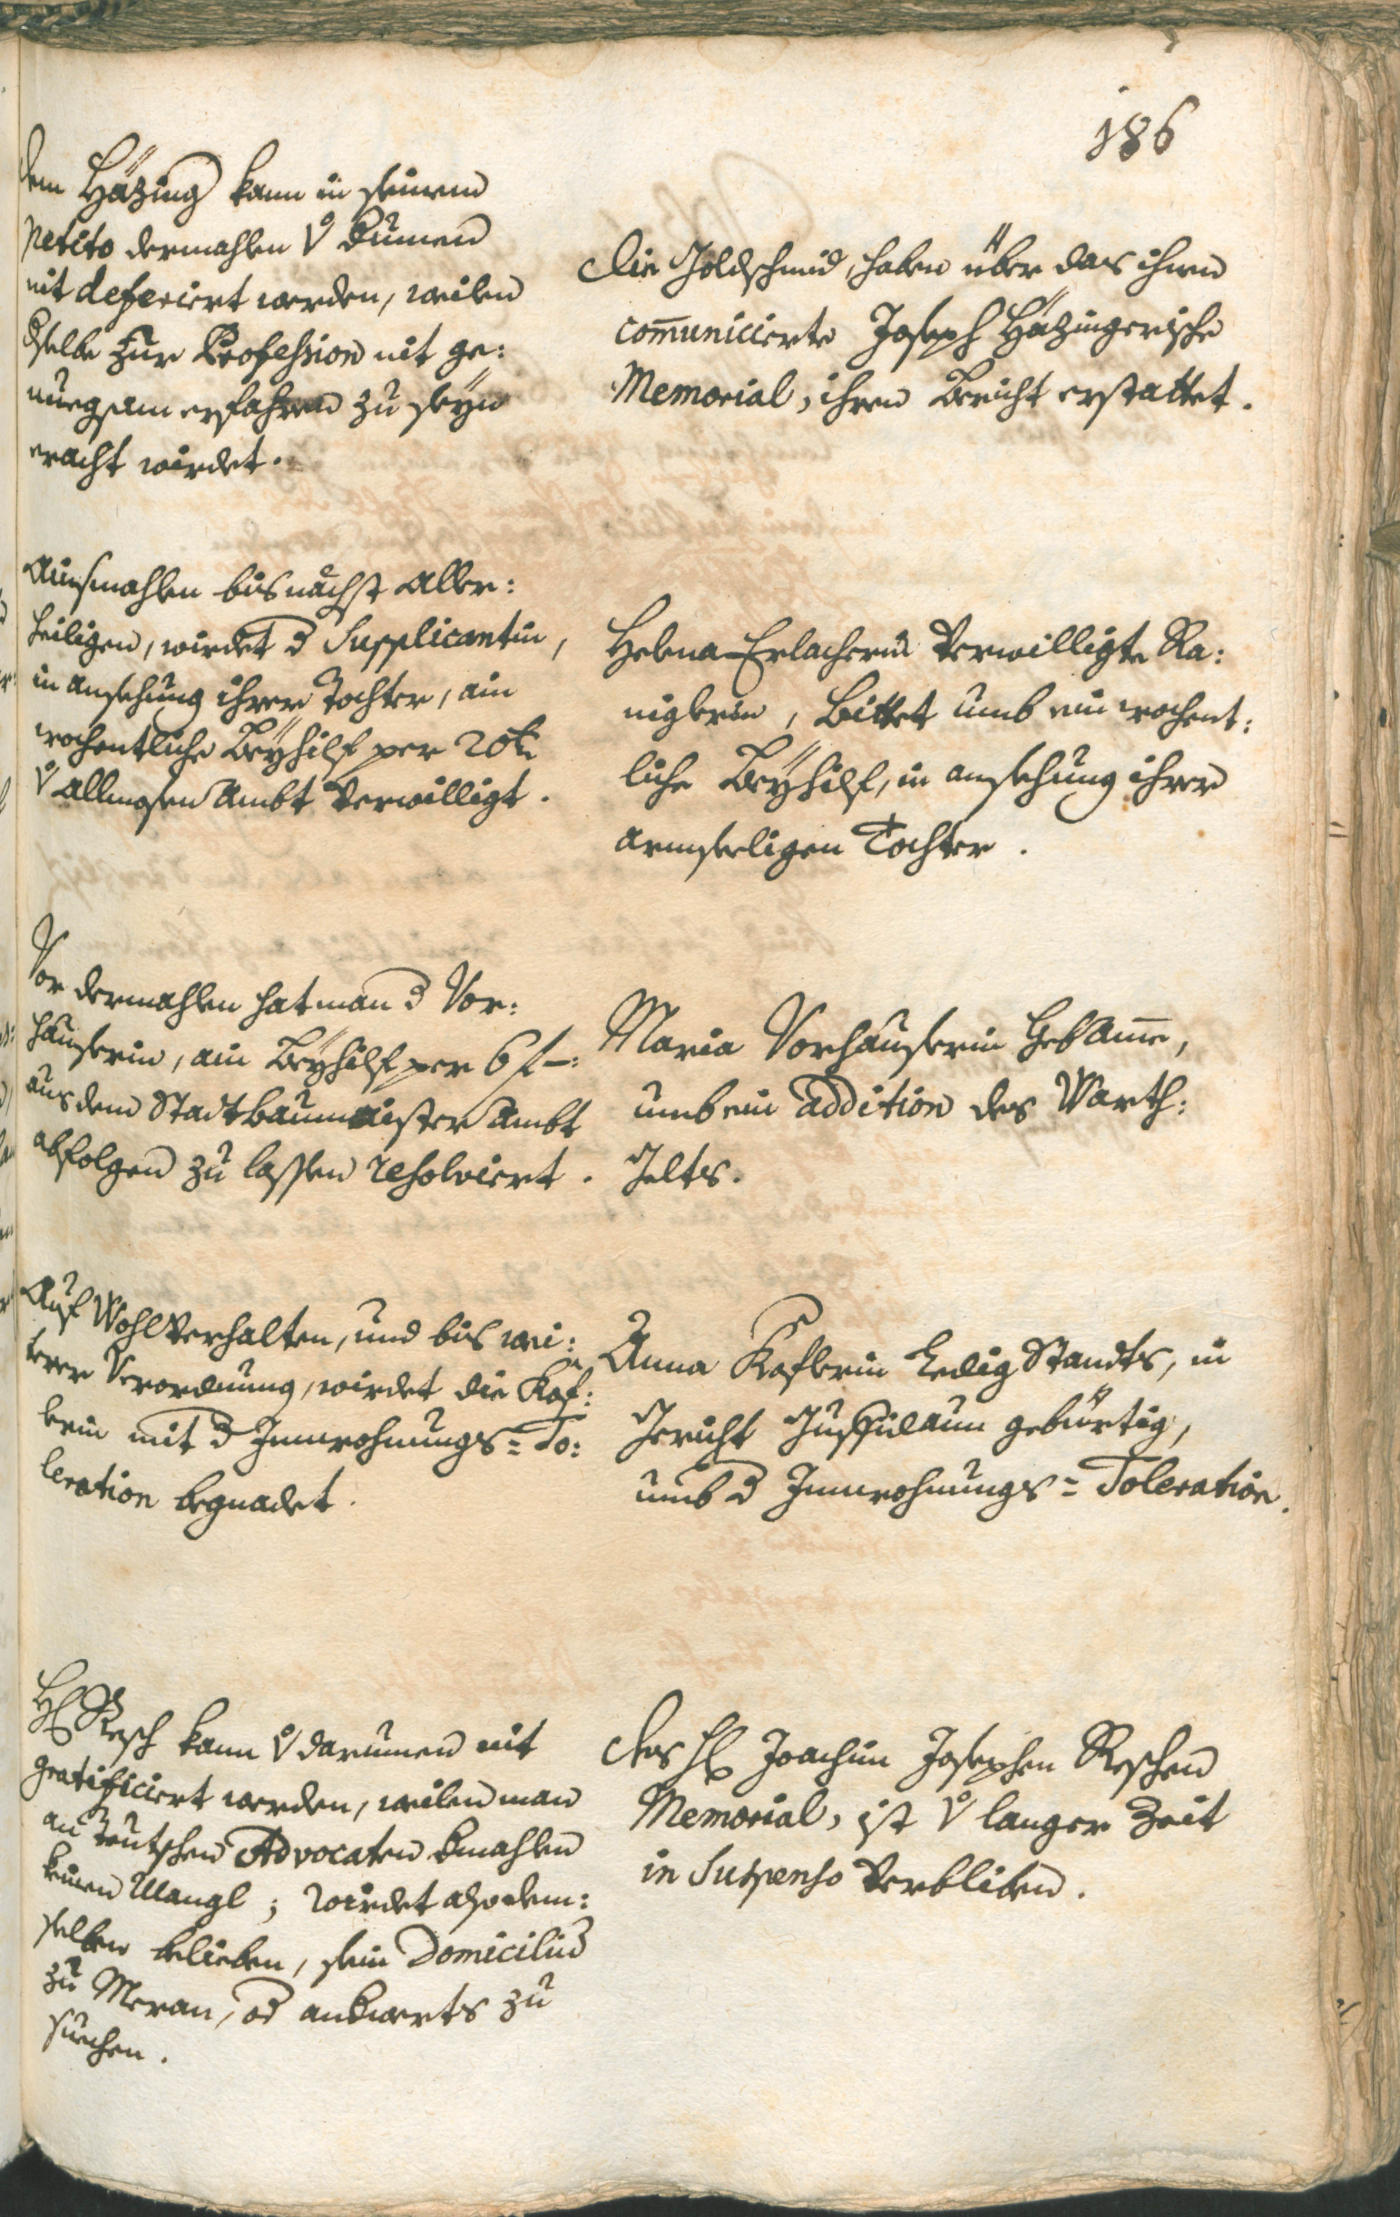 186
dem Häzing kann in seinem
petito dermahlen v̊ dumen
nit deferiert werden, weilen
dselbe zur Profession nit ge:
nuegsam erfahren zu seyn
eracht wirdet.
Die Goldschmid, haben über das ihnen
com̅unicierte Joseph Häzingerische
Memorial, ihren Bericht erstattet.
Ainsmahlen bis nächst Aller:
heiligen, wirdet d Supplicantin,
in ansehung ihrer Tochter, ain
wochentliche Beyhilf per 20 k
v̊ Allmosen Ambt verwilligt.
Helena Erlacherin verwilligte Ra:
niglerin, bittet umb ein wochent:
liche Beyhilf, in ansehung ihrer
armseeligen Tochter.
Vor dermahlen hat man d Vor:
hauserin, ain Beyhilf per 6 f –:
aus dem Stadtbaumaister Ambt
abfolgen zu lassen resolviert.
Maria Vorhauserin Hebam̅e,
umb ein addition des Warth:
Gelts.
Auf Wohlverhalten, und bis wei:
terer Verordnung, wirdet die Kof:
lerin mit d Innwohnungs= To:
leration begnadet.
Anna Koflerin Ledig Standts, in
Gericht Gufidaun gebürtig,
umb d Innwohnungs= Toleration.
H Resch kann v̊ darumen nit
gratificiert werden, weilen man
an teutschen Advocaten dmahlen
keinen Mangl; wirdet also dem:
selben belieben, sein Domicilium
zu Meran, od anderwerts zu
suechen.
Des H Joachim Josephen Reschen
Memorial, ist v̊ langer Zeit
in Suspenso verbliben.